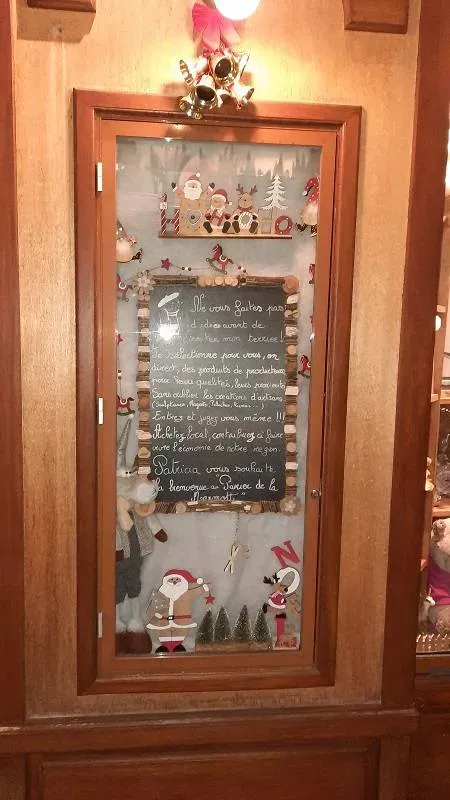 HOHO
Ne vous faites pas
d'idées avant de
visiter mon terrier!
Je sélectionne pour vous, en
direct, des produits de producteurs,
pour leurs qualités, leurs
Sans oublier les créations d'artisans
Entrez et jugez vous même !!!
Achetez local, contribuez à faire
vivre l'économie de notre région.
Patricia vous souhaite
la bienvenue au "Panier de la
Marmotte"